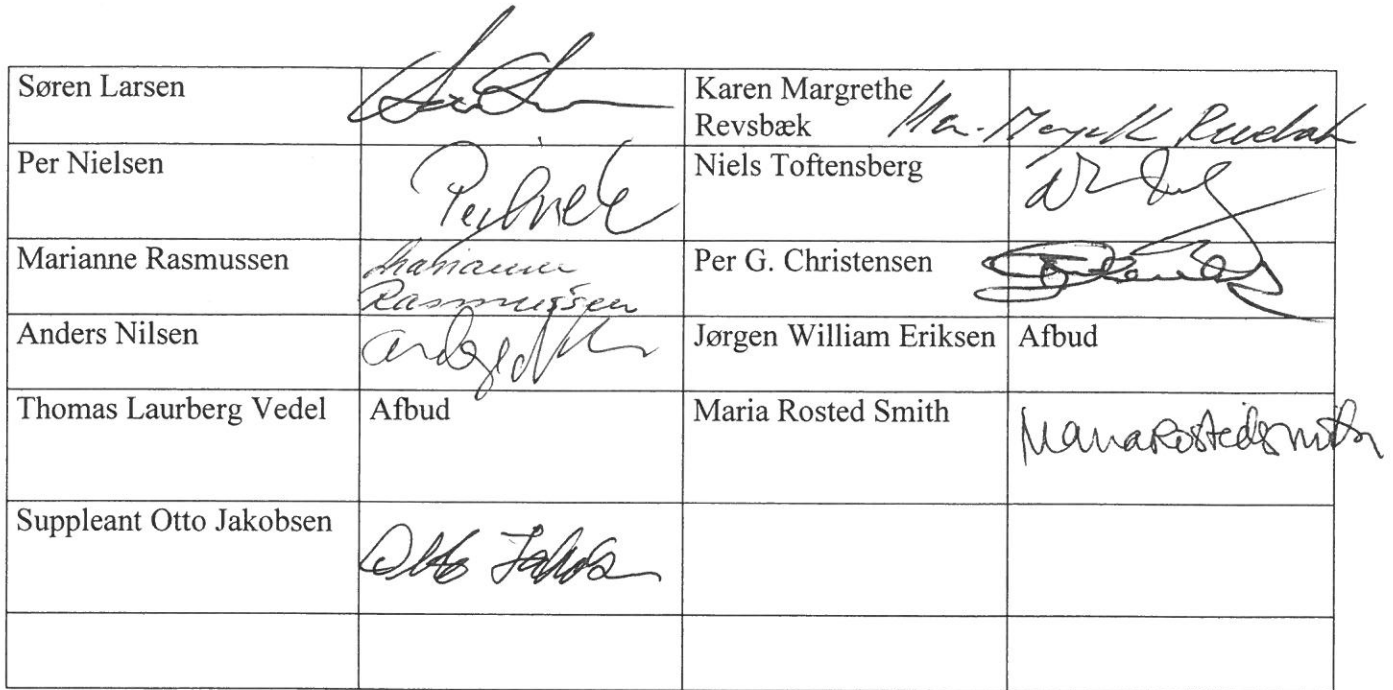 Søren Larsen
Karen Margrethe
Revsbæk
Per Nielsen
Niels Toftensberg
Marianne Rasmussen
Marianne
Rasmussen
Per G. Christensen
Anders Nilsen
Jørgen William Eriksen Afbud
Thomas Laurberg Vedel Afbud
Maria Rosted Smith
Maria Rosted Smith
Suppleant Otto Jakobsen
Otto